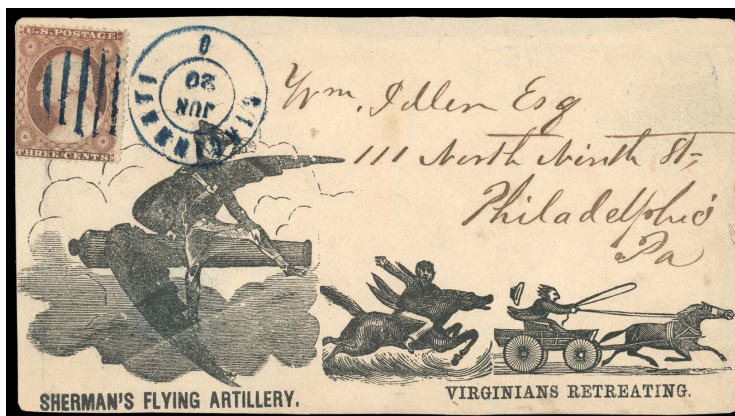 U.S. POSTAGE
THREE CENTS
CINCINNATI
O
JUN
20
Wm. Idler Esq
111 North Ninth St,
Philadelphia
Pa
SHERMAN'S FLYING ARTILLERY.
VIRGINIANS RETREATING.